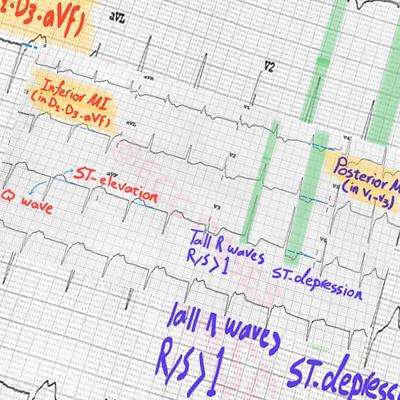 2.D3.aVf)
aVL
V2
Inferior MI
(in D2.D3.aVf)
Posterior M
(in V1-V3)
ST-elevation
Q wave
Tall R waves
R/S>1
ST.depression
Tall R waves
R/S>1
ST.depress